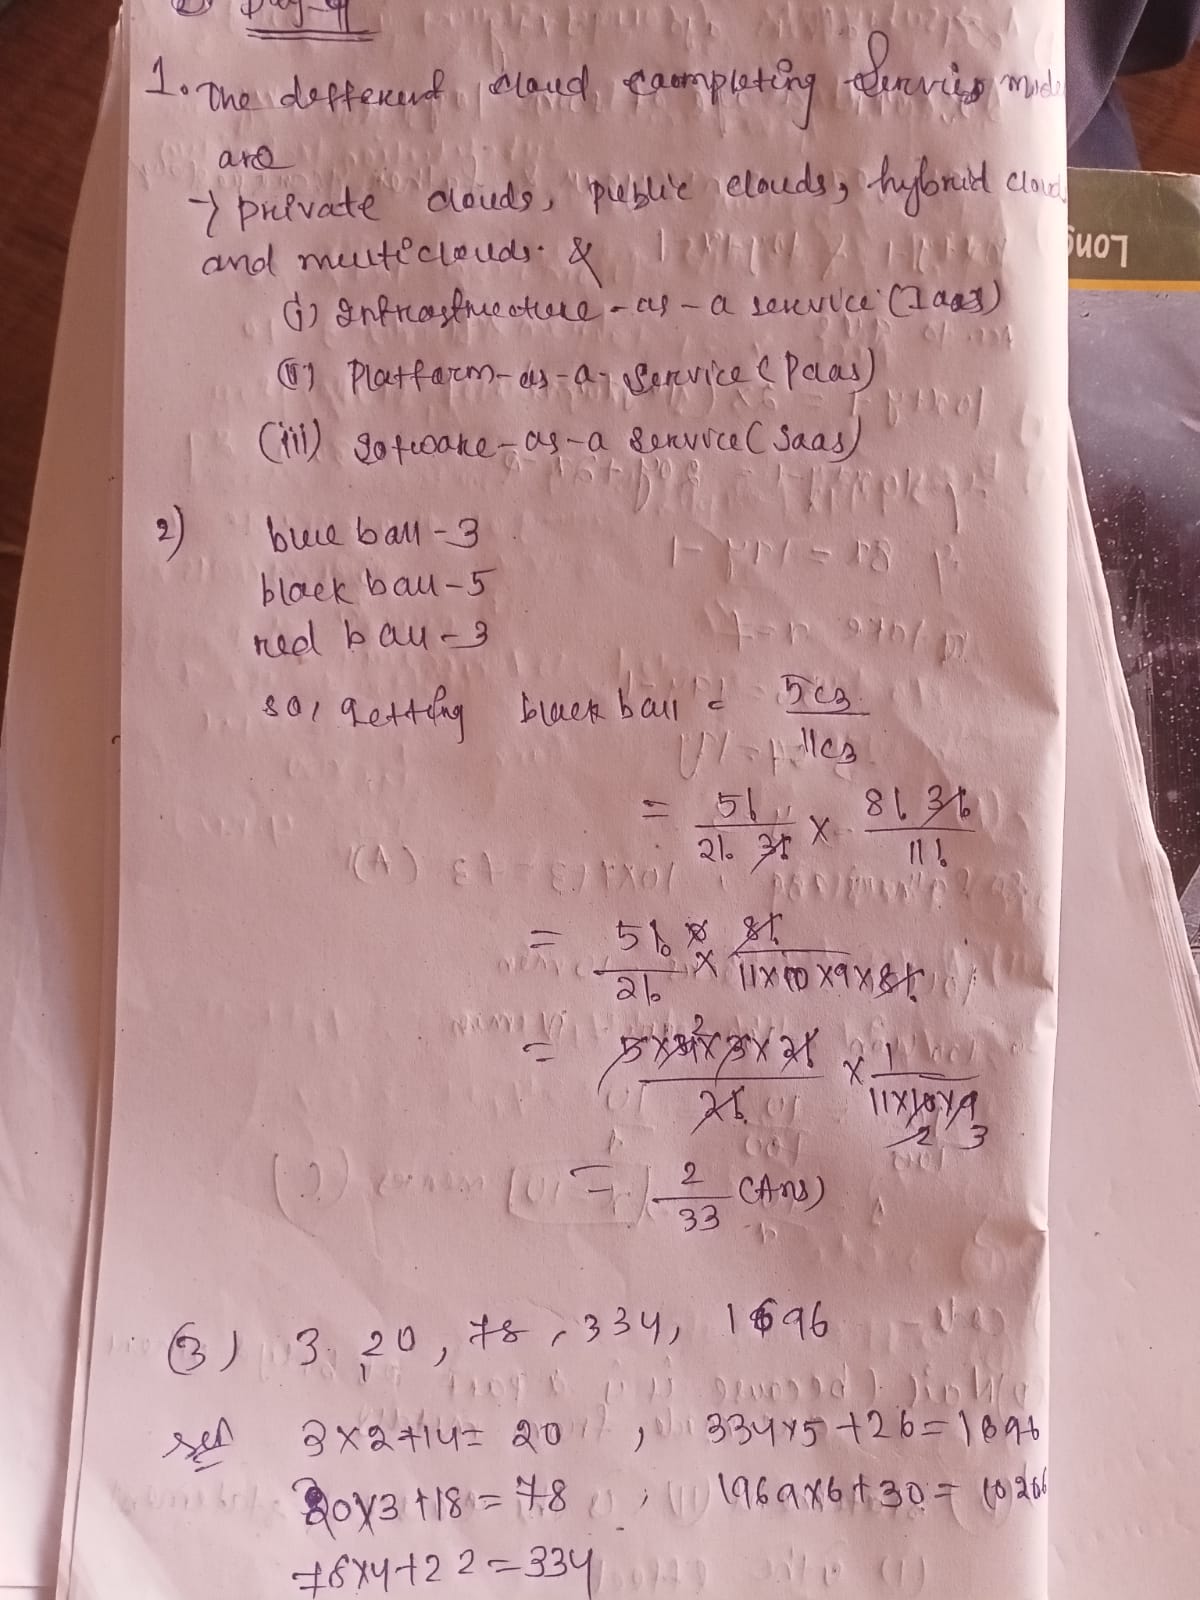 1. The defferent cloud coompleting Service mode
are
→ private clouds, public clouds, hybrid cloud
and multiclouds. &
(i) Infrastructure - as - a service (Iaas)
(ii) Platform - as - a - Service (Paas)
(iii) Software - as - a Service (Saas)
2) blue ball - 3
black ball - 5
red ball - 3
so, getting black ball = 5c3 / 11c3
= 5! / 2! 3! × 8! 3! / 11!
= 5! / 2! × 8! / 11×10×9×8!
= 5×4×3×2! / 2! × 1 / 11×10×9
2
2 3
= 2/33 (Ans)
(3) 3, 20, 78, 334, 1696
3×2+14 = 20, 334×5+26 = 1696
20×3+18 = 78, 1969×6+30 = 10206
78×4+22 = 334